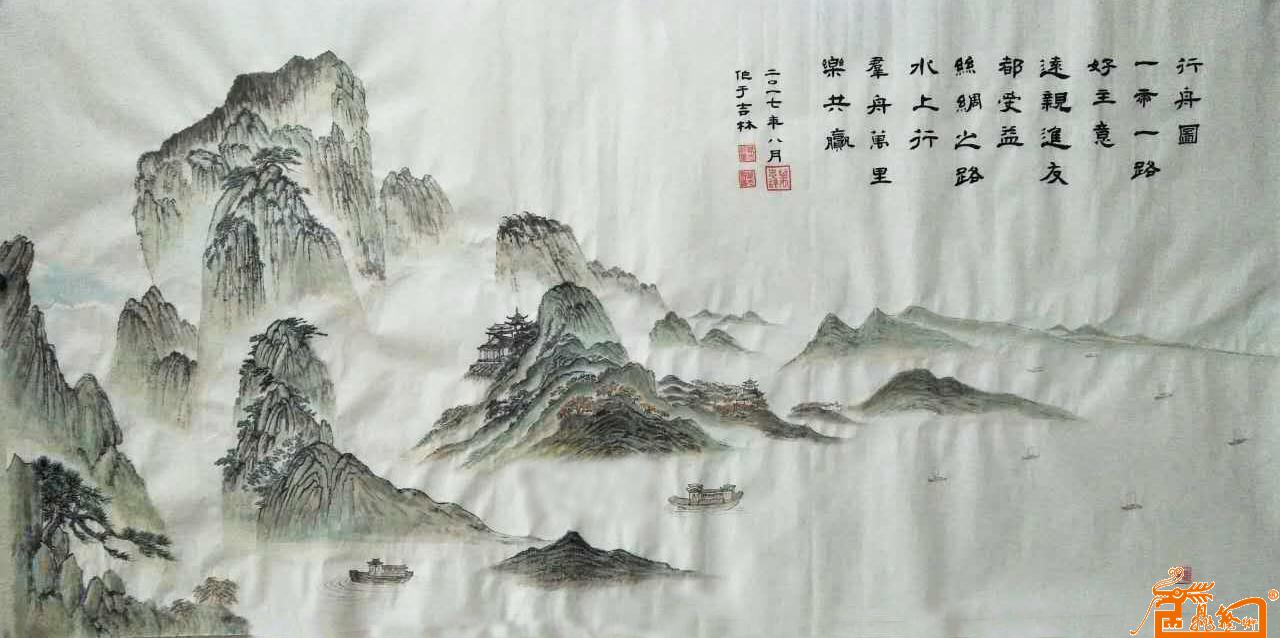 行舟圖
一帶一路
好主意
遠親進友
都受益
絲綢之路
水上行
羣舟萬里
樂共贏
二〇一七年八月
作于吉林